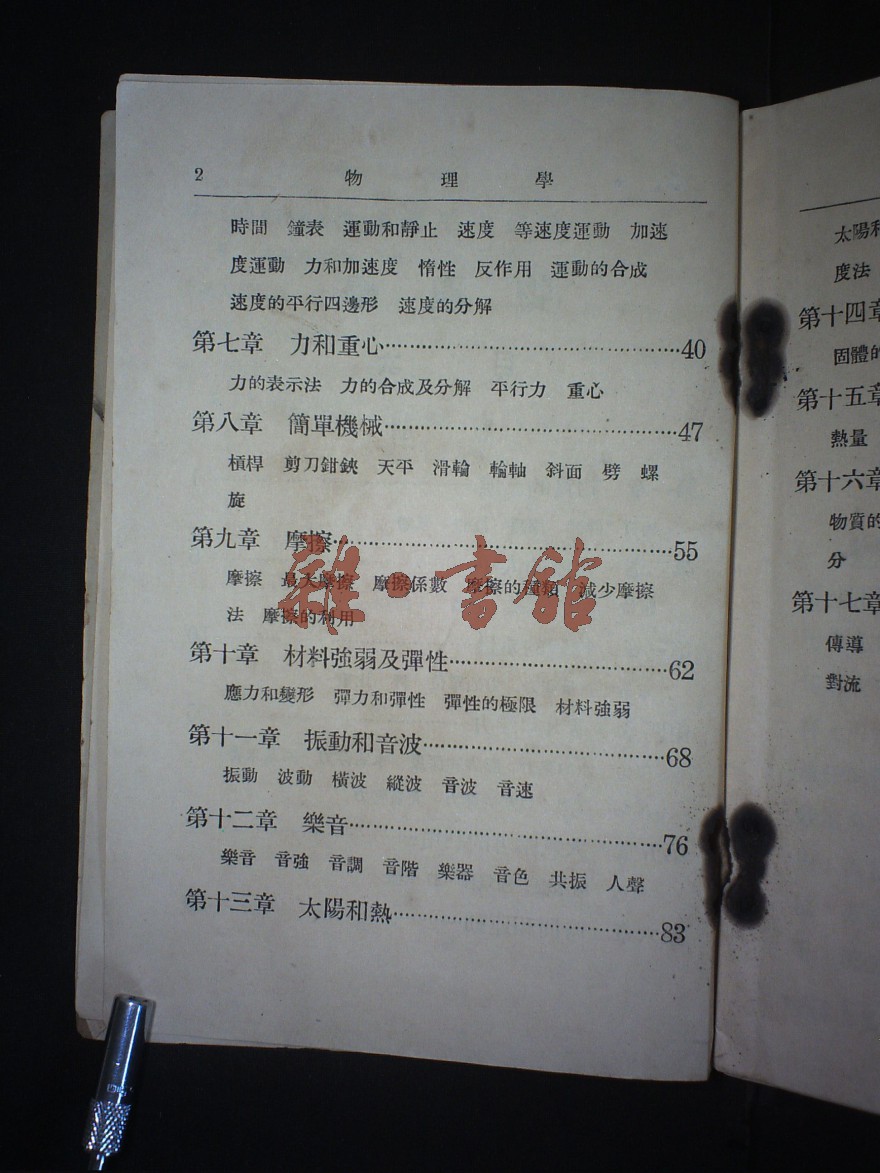 2 物理學
時間 鐘表 運動和靜止 速度 等速度運動 加速
度運動 力和加速度 惰性 反作用 運動的合成
速度的平行四邊形 速度的分解
第七章 力和重心……40
力的表示法 力的合成及分解 平行力 重心
第八章 簡單機械……47
槓桿 剪刀鉗鋏 天平 滑輪 輪軸 斜面 劈 螺
旋
第九章 摩擦……55
摩擦 最大摩擦 摩擦係數 摩擦的種類 減少摩擦
法 摩擦的利用
第十章 材料強弱及彈性……62
應力和變形 彈力和彈性 彈性的極限 材料強弱
第十一章 振動和音波……68
振動 波動 橫波 縱波 音波 音速
第十二章 樂音……76
樂音 音強 音調 音階 樂器 音色 共振 人聲
第十三章 太陽和熱……83
雜·書館
太陽和
度法
第十四章
固體的
第十五章
熱量
第十六章
物質的
分
第十七章
傳導
對流